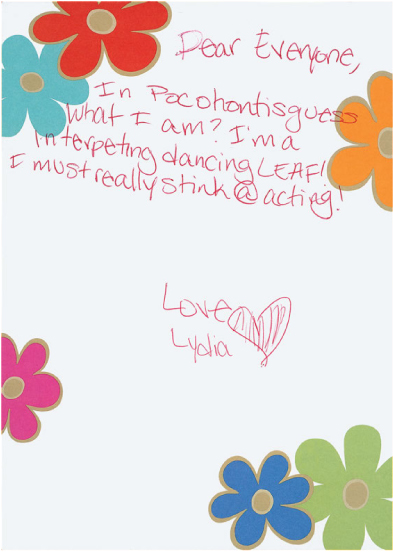 Dear Everyone,
In Pocohontisguess
what I am? I'm a
Interpeting dancing LEAF!
I must really stink @ acting!
Love
Lydia